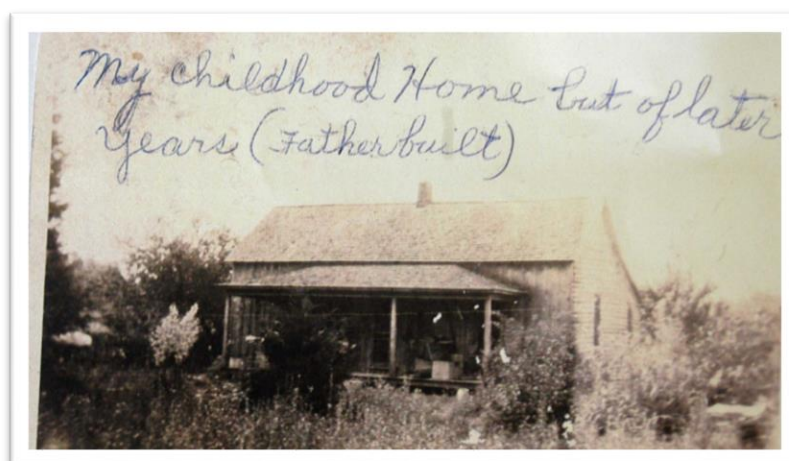 My childhood Home but of later
years (Father built)